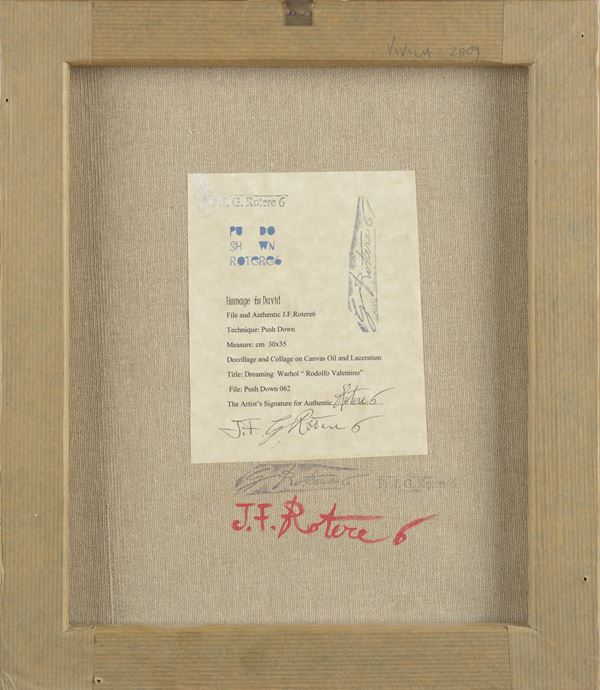 2009
J. G. Rotere 6
PU DO
SH WN
ROTERE6
Rotere 6
Homage to David
File and Authentic J.F.Rotere6
Technique: Push Down
Measure: cm 30x35
Decollage and Collage on Canvas Oil and Laceration
Title: Dreaming Warhol “ Rodolfo Valentino”
File: Push Down 062
The Artist's Signature for Authentic Rotere 6
J.F. G Rotere 6
Rotere 6
J.F. Rotere 6